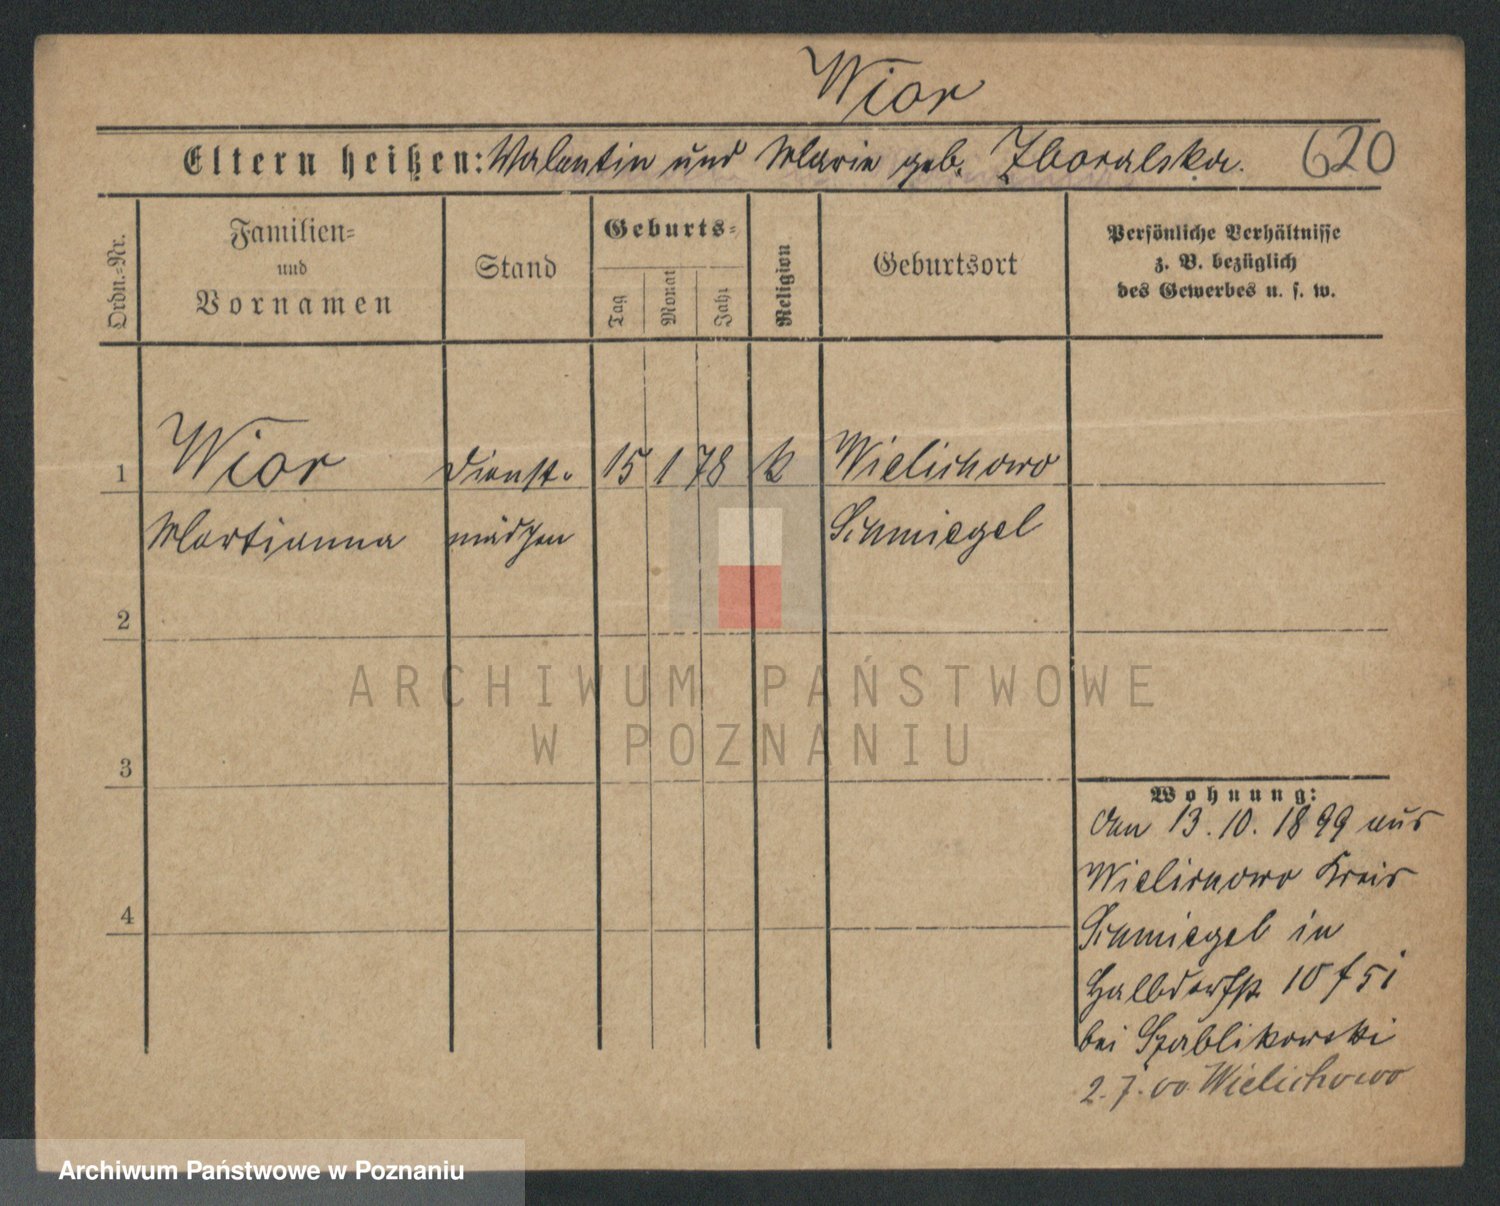 Wior
Eltern heißen: Valentin und Marie geb. Zboralska. 620
Ordn.=Nr.
Familien=
und
Vornamen
Stand
Geburts=
Tag
Monat
Jahr
Religion
Geburtsort
Persönliche Verhältnisse
z. B. bezüglich
des Gewerbes u. s. w.
1 Wior Dienst- 15 1 78 k Wielichowo
Martianna mädchen Schmiegel
2
3
4
Wohnung:
den 13. 10. 1899 aus
Wielichowo Kreis
Schmiegel in
Halbdorfstr. 10
bei Szablikowski
2. 7. 00 Wielichowo
ARCHIWUM PAŃSTWOWE
W POZNANIU
Archiwum Państwowe w Poznaniu